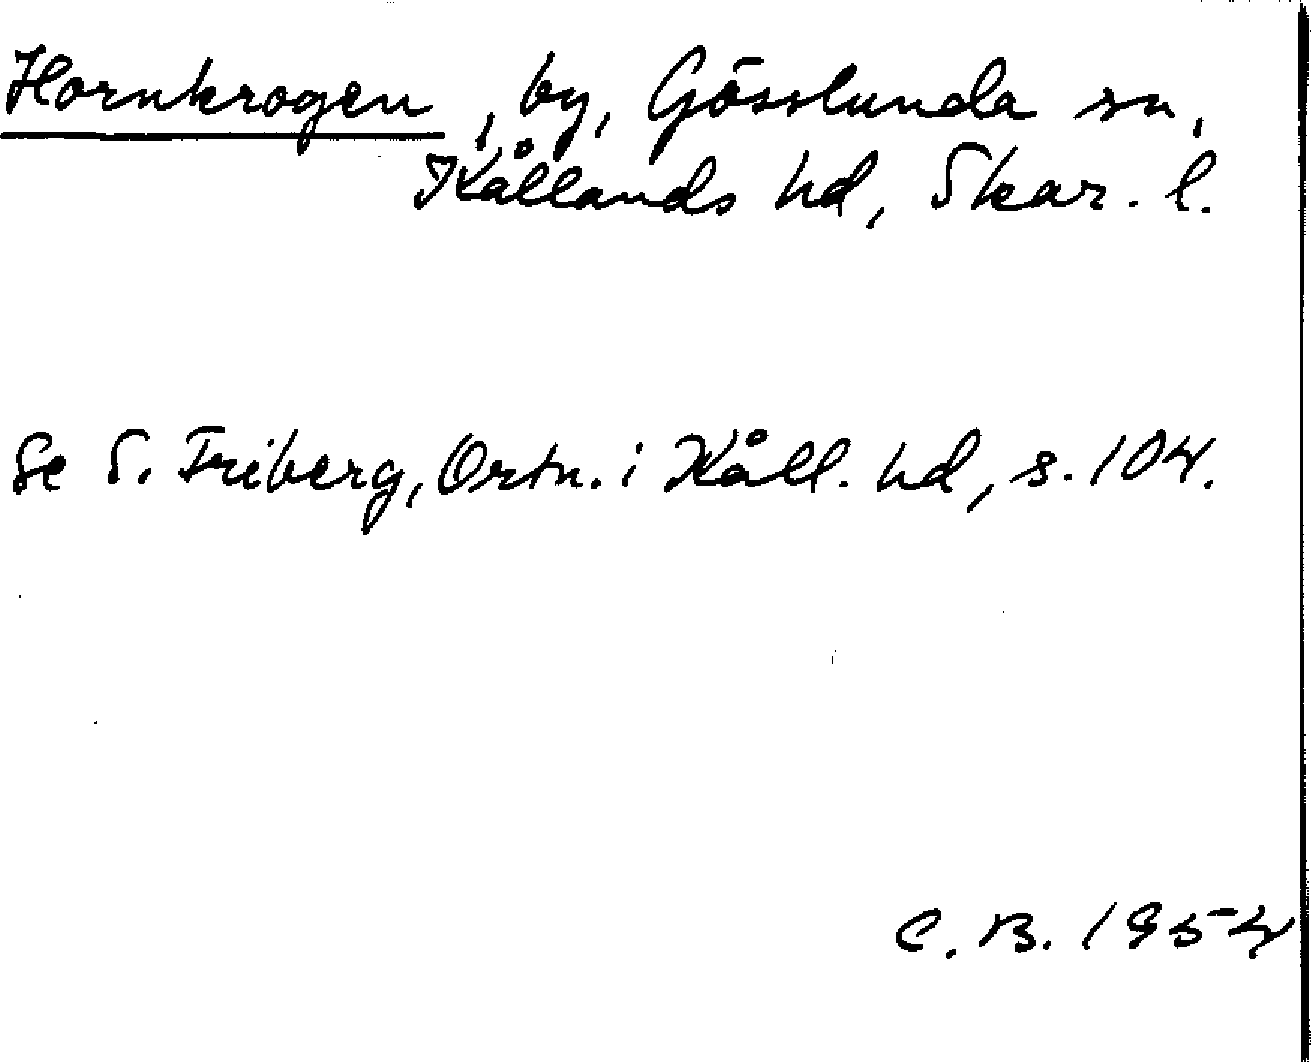 Hornkrogen, by, Gösslunda sn,
Kållands hd, Skar. l.
Se S. Friberg, Ortn. i Kåll. hd, s. 104.
C. B. 1954